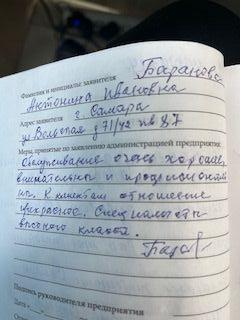 Фамилия и инициалы заявителя Баранова
Антонина Ивановна
Адрес заявителя г. Самара
ул Вольская д 71/42 кв 87
Меры, принятые по заявлению администрацией предприятия:
Обслуживание очень хорошее
внимательны и профисиональ
ны. К клиентам отношение
прекрасное. Специалисты
высокого класса.
Подпись руководителя предприятия
Дата «